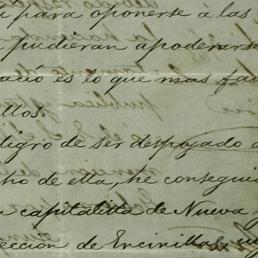 para oponerse á las
pudieran apoderarse
es lo que mas
llos.
ligro de ser despojado
ho de ella, he consegui
capitalita de Nueva
eccion de Encinillas,